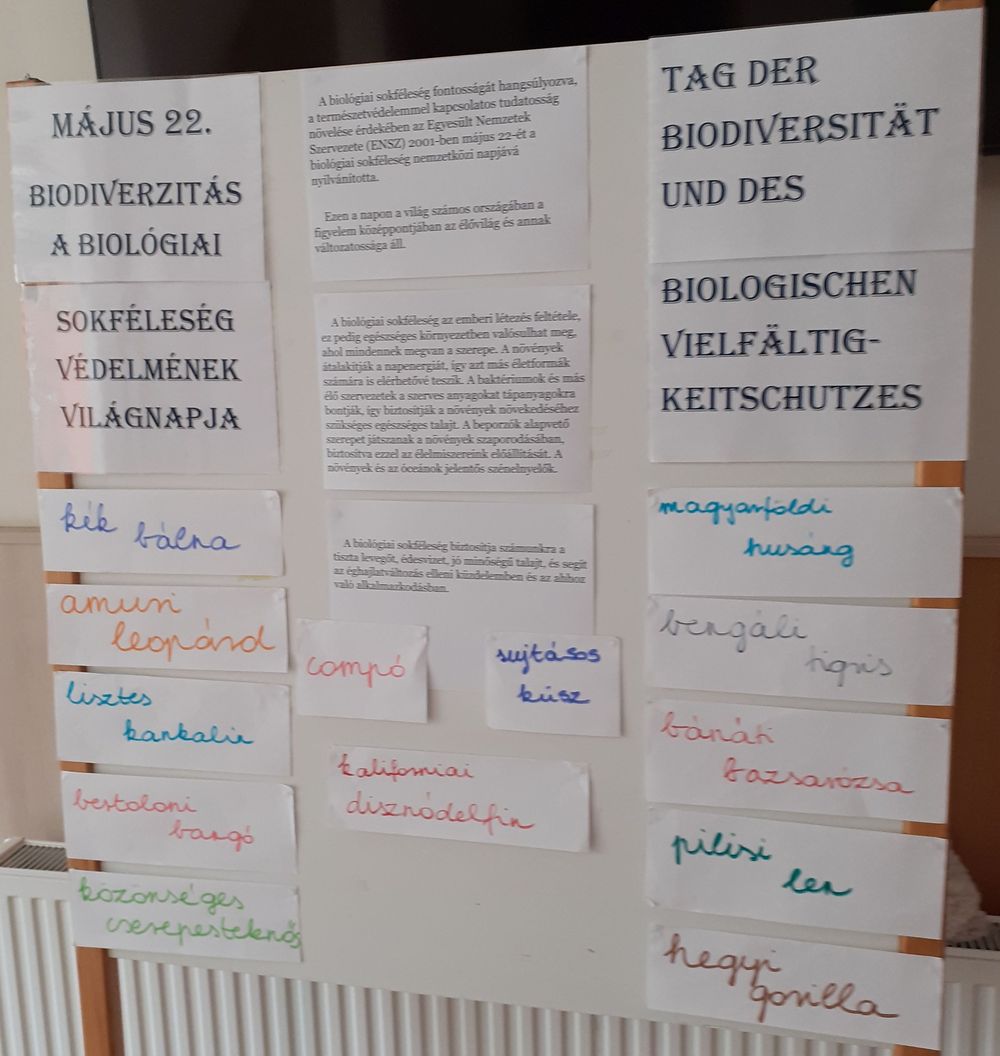 MÁJUS 22.
BIODIVERZITÁS
A BIOLÓGIAI
SOKFÉLESÉG
VÉDELMÉNEK
VILÁGNAPJA
kék
bálna
amuri
leopárd
lisztes
kankalin
bertoloni
bangó
közönséges
cserepesteknős
A biológiai sokféleség fontosságát hangsúlyozva,
a természetvédelemmel kapcsolatos tudatosság
növelése érdekében az Egyesült Nemzetek
Szervezete (ENSZ) 2001-ben május 22-ét a
biológiai sokféleség nemzetközi napjává
nyilvánította.
Ezen a napon a világ számos országában a
figyelem középpontjában az élővilág és annak
változatossága áll.
A biológiai sokféleség az emberi létezés feltétele,
ez pedig egészséges környezetben valósulhat meg,
ahol mindennek megvan a szerepe. A növények
átalakítják a napenergiát, így azt más életformák
számára is elérhetővé teszik. A baktériumok és más
élő szervezetek a szerves anyagokat tápanyagokra
bontják, így biztosítják a növények növekedéséhez
szükséges egészséges talajt. A beporzók alapvető
szerepet játszanak a növények szaporodásában,
biztosítva ezzel az élelmiszereink előállítását. A
növények és az óceánok jelentős szénelnyelők.
A biológiai sokféleség biztosítja számunkra a
tiszta levegőt, édesvizet, jó minőségű talajt, és segít
az éghajlatváltozás elleni küzdelemben és az ahhoz
való alkalmazkodásban.
compó
sujtásos
küsz
kaliforniai
disznódelfin
TAG DER
BIODIVERSITÄT
UND DES
BIOLOGISCHEN
VIELFÄLTIG-
KEITSCHUTZES
magyarföldi
husáng
bengáli
tigris
bánáti
bazsarózsa
pilisi
len
hegyi
gorilla